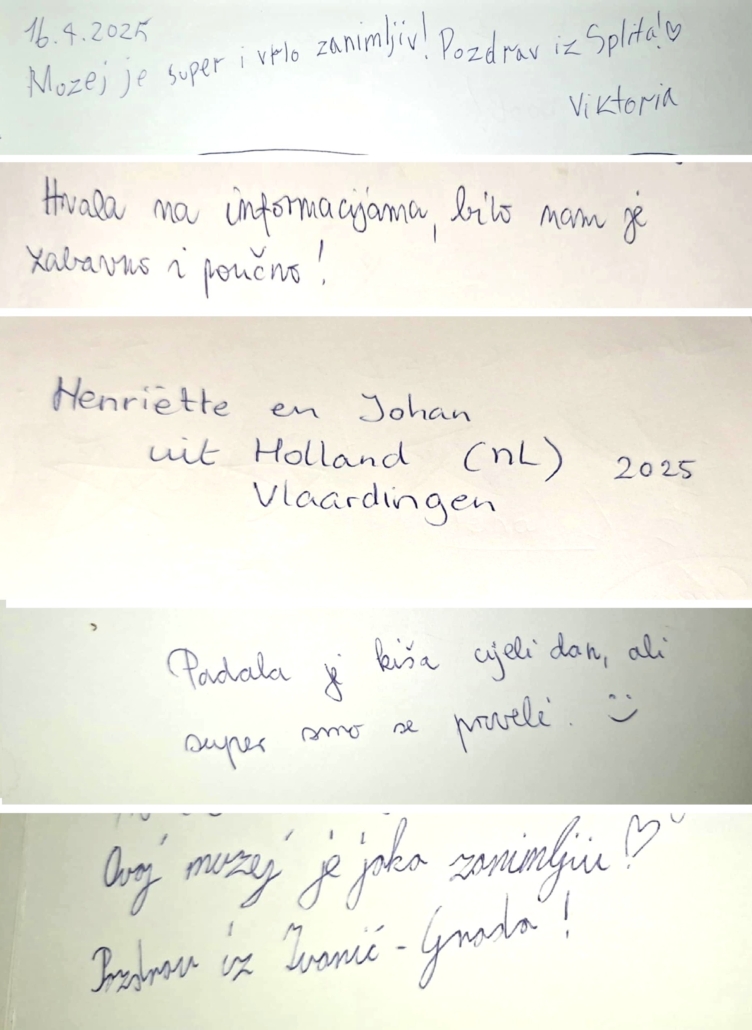 16.4.2025
Muzej je super i vrlo zanimljiv! Pozdrav iz Splita!♡
Viktoria
Hvala na informacijama, bilo nam je
zabavno i poučno!
Henriëtte en Johan
uit Holland (NL) 2025
Vlaardingen
Padala je kiša cijeli dan, ali
super smo se proveli. :)
Ovaj muzej je jako zanimljiv!♡
Pozdrav iz Ivanić-Grada!